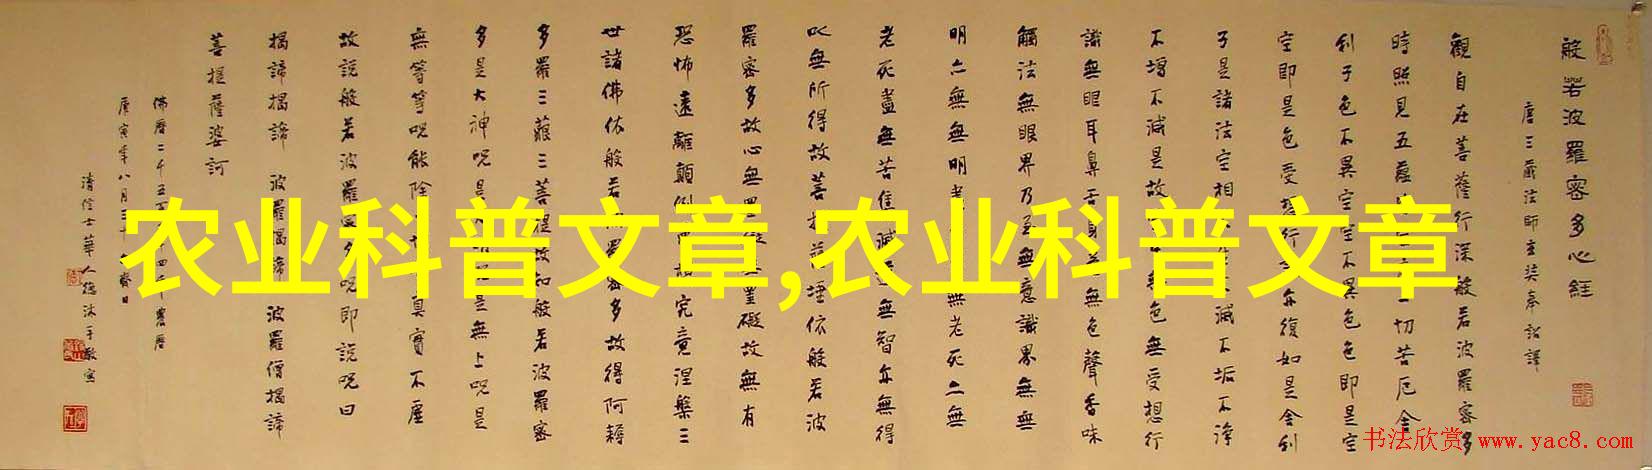 般若波羅密多心經
唐三藏法師玄奘奉詔譯
觀自在菩薩行深般若波羅密多
時照見五蘊一切苦厄舍
利子色不異空空不異色色即是空
空即是色受想行亦復如是舍利
子是諸法空相滅不垢不淨
不增不減是故色無受想行
識無眼耳鼻舌身意無色聲香味
觸法無眼界乃至無意識界無無
明亦無無明無老死亦無
老死盡無苦集滅道無智亦無得
以無所得故菩提薩埵依般若波
羅密多故心無罣礙無罣礙故無有
恐怖遠離顛倒夢想究竟涅槃三
世諸佛依般若波羅密多故得阿耨
多羅三藐三菩提故知般若波羅密
多是大神咒是大明咒是無上咒是
無等等咒能除一切真實不虛
故說般若波羅密多咒即說咒曰
揭諦揭諦 波羅揭諦 波羅僧揭諦
菩提薩婆訶
佛曆二千五百四年農曆
庚寅年八月三十齋日
清信士華人德沐手敬寫
农业科普文章,农业科普文章
书法欣赏 www.yac8.com